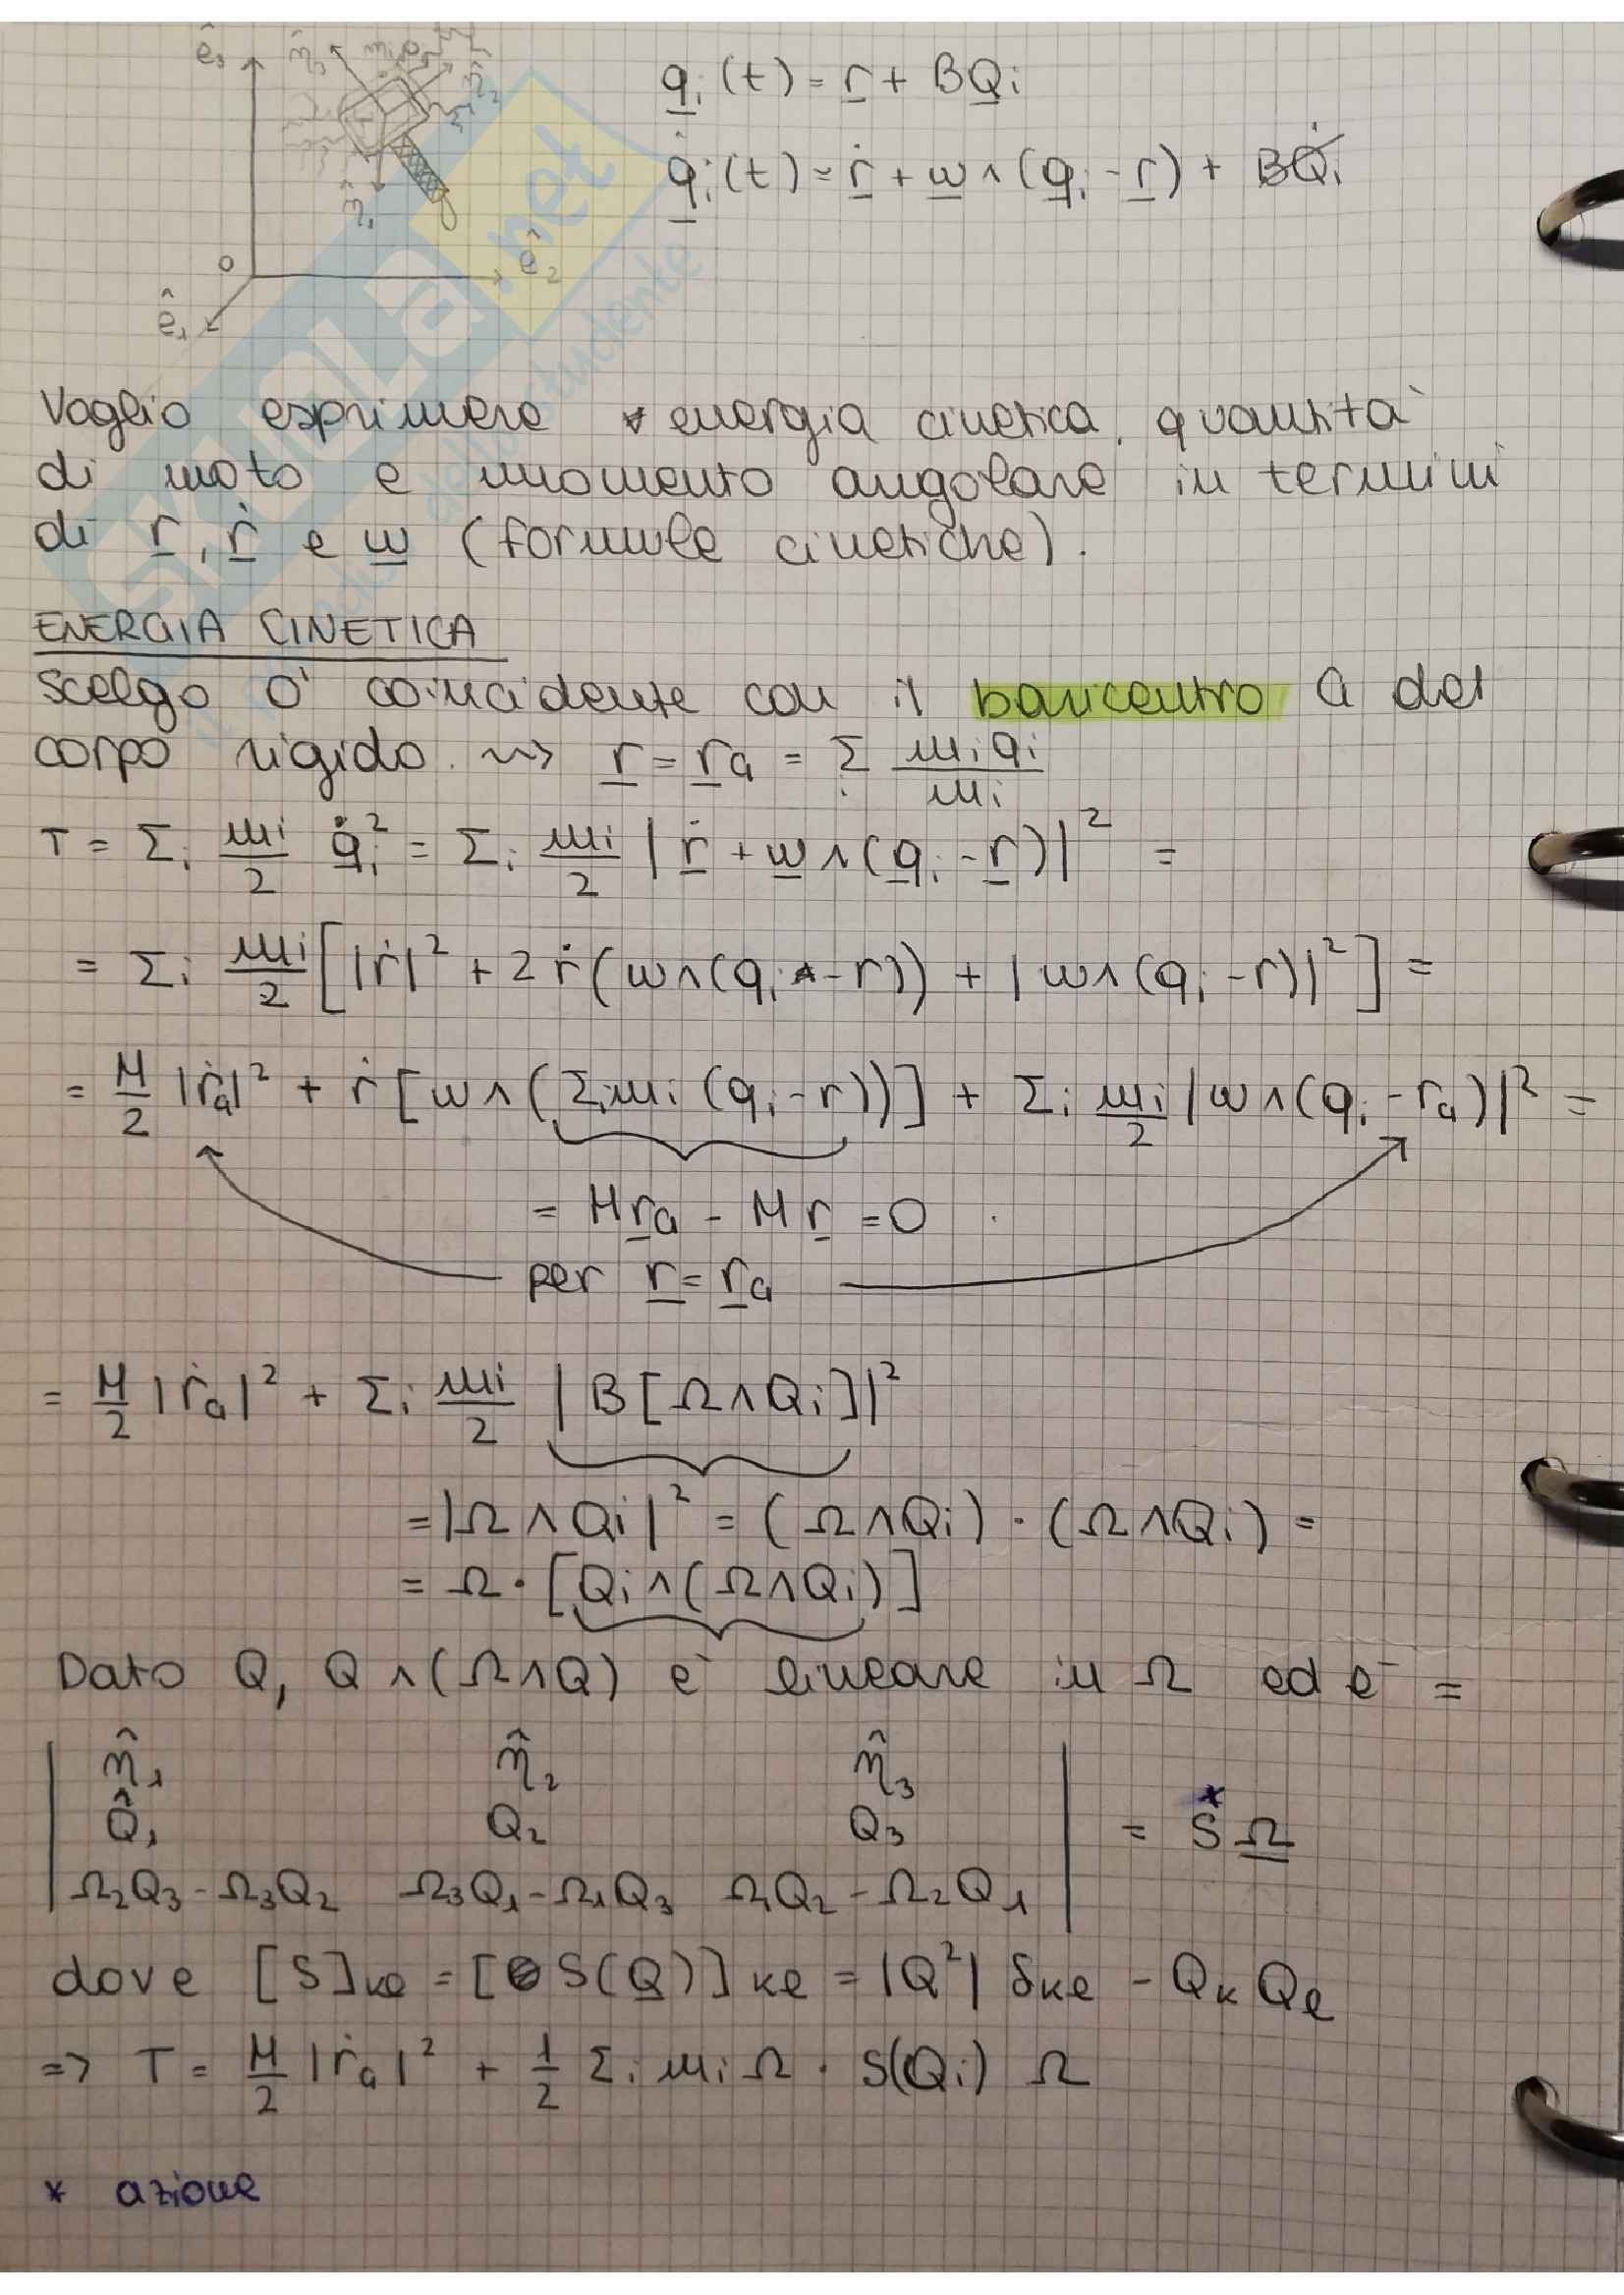 ê₃ η̂₃ mᵢ
q̲ᵢ(t) = r̲ + BQ̲ᵢ
q̲̇ᵢ(t) = ṙ̲ + w̲ ∧ (q̲ᵢ - r̲) + BQ̇ᵢ
O ê₂
ê₁
SKUOLA.net
Voglio esprimere energia cinetica, quantità
di moto e momento angolare in termini
di r̲, ṙ̲ e w̲ (formule cinetiche).
ENERGIA CINETICA
Scelgo O' coincidente con il baricentro G del
corpo rigido. ⇝ r̲ = r̲_G = Σᵢ mᵢqᵢ / mᵢ
T = Σᵢ mᵢ/2 q̲̇ᵢ² = Σᵢ mᵢ/2 |ṙ̲ + w̲ ∧ (q̲ᵢ - r̲)|² =
= Σᵢ mᵢ/2 [|ṙ|² + 2ṙ(w∧(qᵢ - r)) + |w∧(qᵢ - r)|²] =
= M/2 |ṙ_G|² + ṙ[w∧(Σᵢmᵢ(qᵢ - r))] + Σᵢ mᵢ/2 |w∧(qᵢ - r_G)|² =
= Mr̲_G - Mr̲ = 0
per r̲ = r̲_G
= M/2 |ṙ_G|² + Σᵢ mᵢ/2 |B[Ω∧Qᵢ]|²
= |Ω∧Qᵢ|² = (Ω∧Qᵢ)·(Ω∧Qᵢ) =
= Ω·[Qᵢ∧(Ω∧Qᵢ)]
Dato Q, Q∧(Ω∧Q) è lineare in Ω ed è =
| η̂₁ η̂₂ η̂₃ |
| Q̂₁ Q₂ Q₃ | = S* Ω̲
| Ω₂Q₃ - Ω₃Q₂ Ω₃Q₁ - Ω₁Q₃ Ω₁Q₂ - Ω₂Q₁ |
dove [S]ₖₑ = [S(Q̲)]ₖₑ = |Q²| δₖₑ - QₖQₑ
=> T = M/2 |ṙ_G|² + 1/2 Σᵢ mᵢ Ω · S(Qᵢ) Ω
* azione